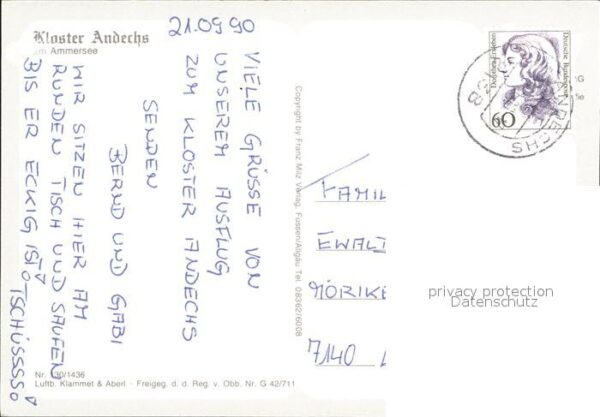 Kloster Andechs
am Ammersee
21.09.90
VIELE GRÜSSE VON
UNSEREM AUSFLUG
ZUM KLOSTER ANDECHS
SENDEN
BERND UND GABI
WIR SITZEN HIER AM
RUNDEN TISCH UND SAUFEN
BIS ER ECKIG IST
TSCHÜSSSSO
Nr. 130/1436
Luftb. Klammet & Aberl - Freigeg. d. d. Reg. v. Obb. Nr. G 42/711
Copyright by Franz Milz Verlag, Füssen/Allgäu Tel. 08362/6008
Deutsche Bundespost
60
ANDECHS
FAMIL
EWALD
MÖRIKE
7140 L
privacy protection
Datenschutz